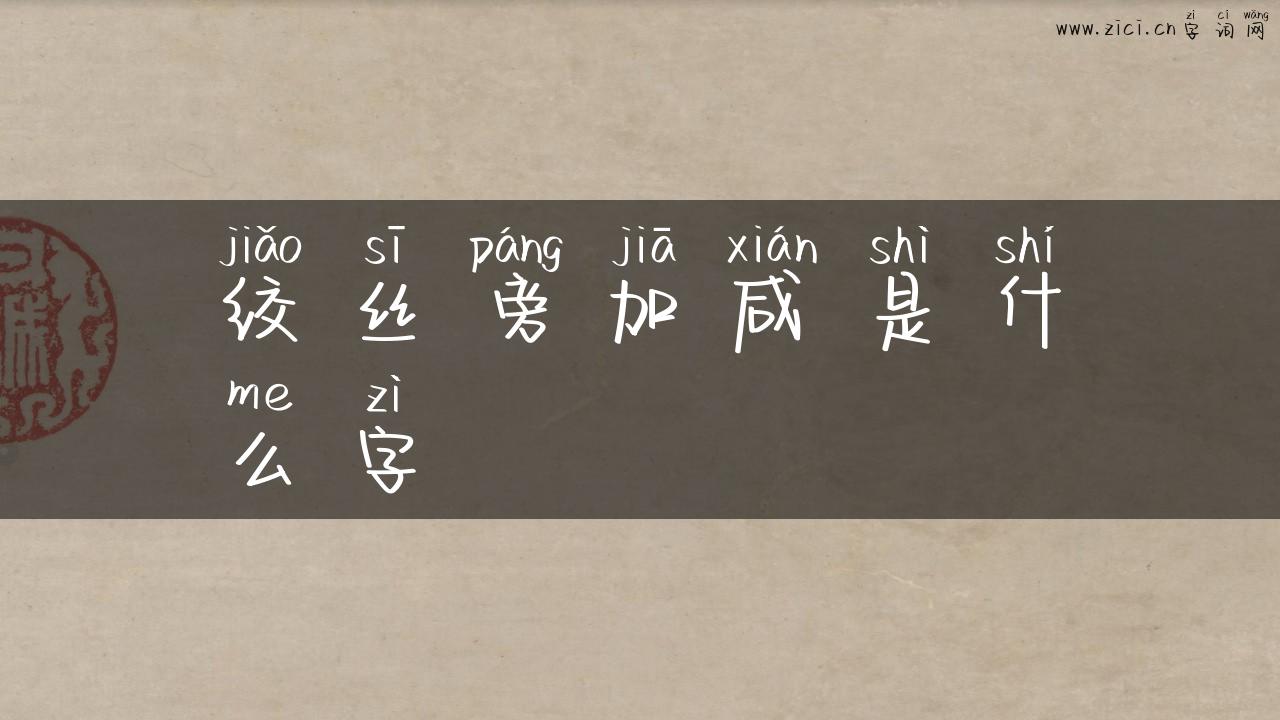 www.zici.cn 字词网
zì cí wǎng
jiǎo sī páng jiā xián shì shí
绞丝旁加咸是什
me zì
么字